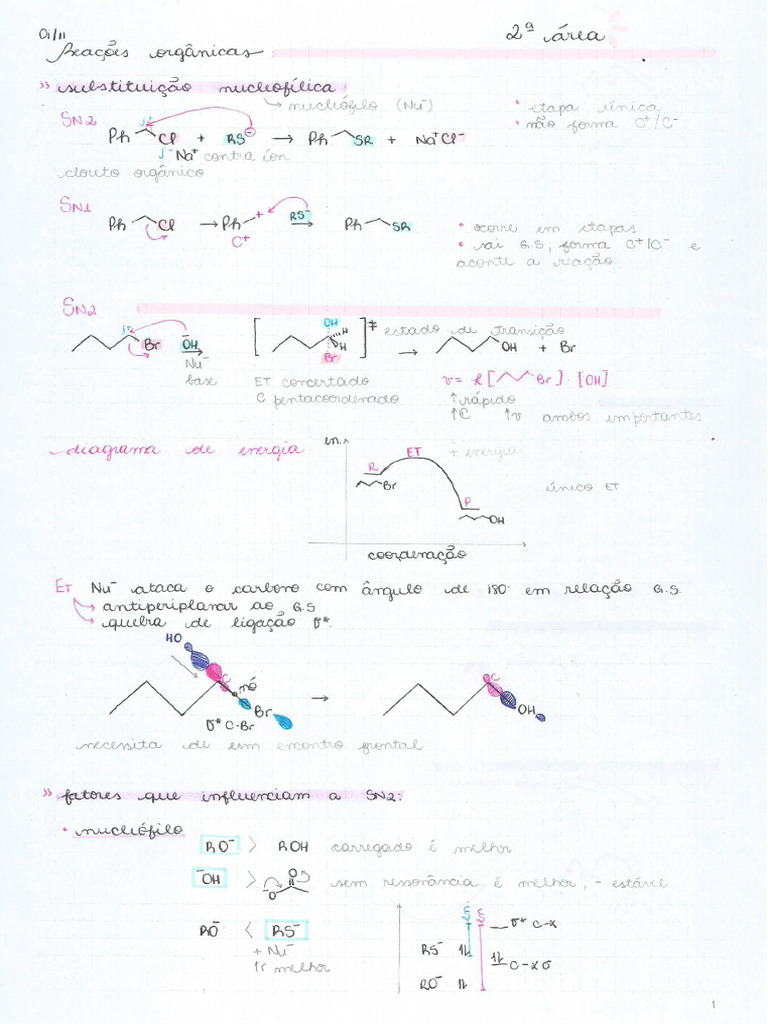 01/11
2ª área
Reações orgânicas
» substituição nucleofílica
↳ nucleófilo (Nu⁻)
SN2
Ph Cl + RS⁻ → Ph SR + Na⁺Cl⁻
• etapa única
• não forma C⁺/C⁻
δ⁻ Na⁺ contra íon
clouto orgânico
SN1
Ph Cl → Ph + RS⁻ → Ph SR
C⁺
• ocorre em etapas
• sai G.S, forma C⁺/C⁻ e
aconte a reação
SN2
δ⁺ Br ⁻OH → [OH H H Br]‡ estado de transição → OH + Br
Nu⁻
base
ET concertado
C pentacoordenado
v = k[ Br] · [OH]
↑ rápido
↑C ↑v ambos importantes
diagrama de energia
en.
R ET + energia
Br
P
OH
único ET
coordenação
ET Nu⁻ ataca o carbono com ângulo de 180° em relação G.S.
↳ antiperiplanar ao G.S
↳ quebra de ligação σ*.
HO
C nó
Br
σ* C-Br
→
C
OH
necessita de um encontro frontal
» fatores que influenciam a SN2:
• nucleófilo
RO⁻ > ROH carregado é melhor
⁻OH > ⁻O O sem ressonância é melhor, - estável
RO⁻ < RS⁻
+ Nu⁻
é melhor
σ* C-X
RS⁻ ⥮
⥮ C-X σ
RO⁻ ⥮
1